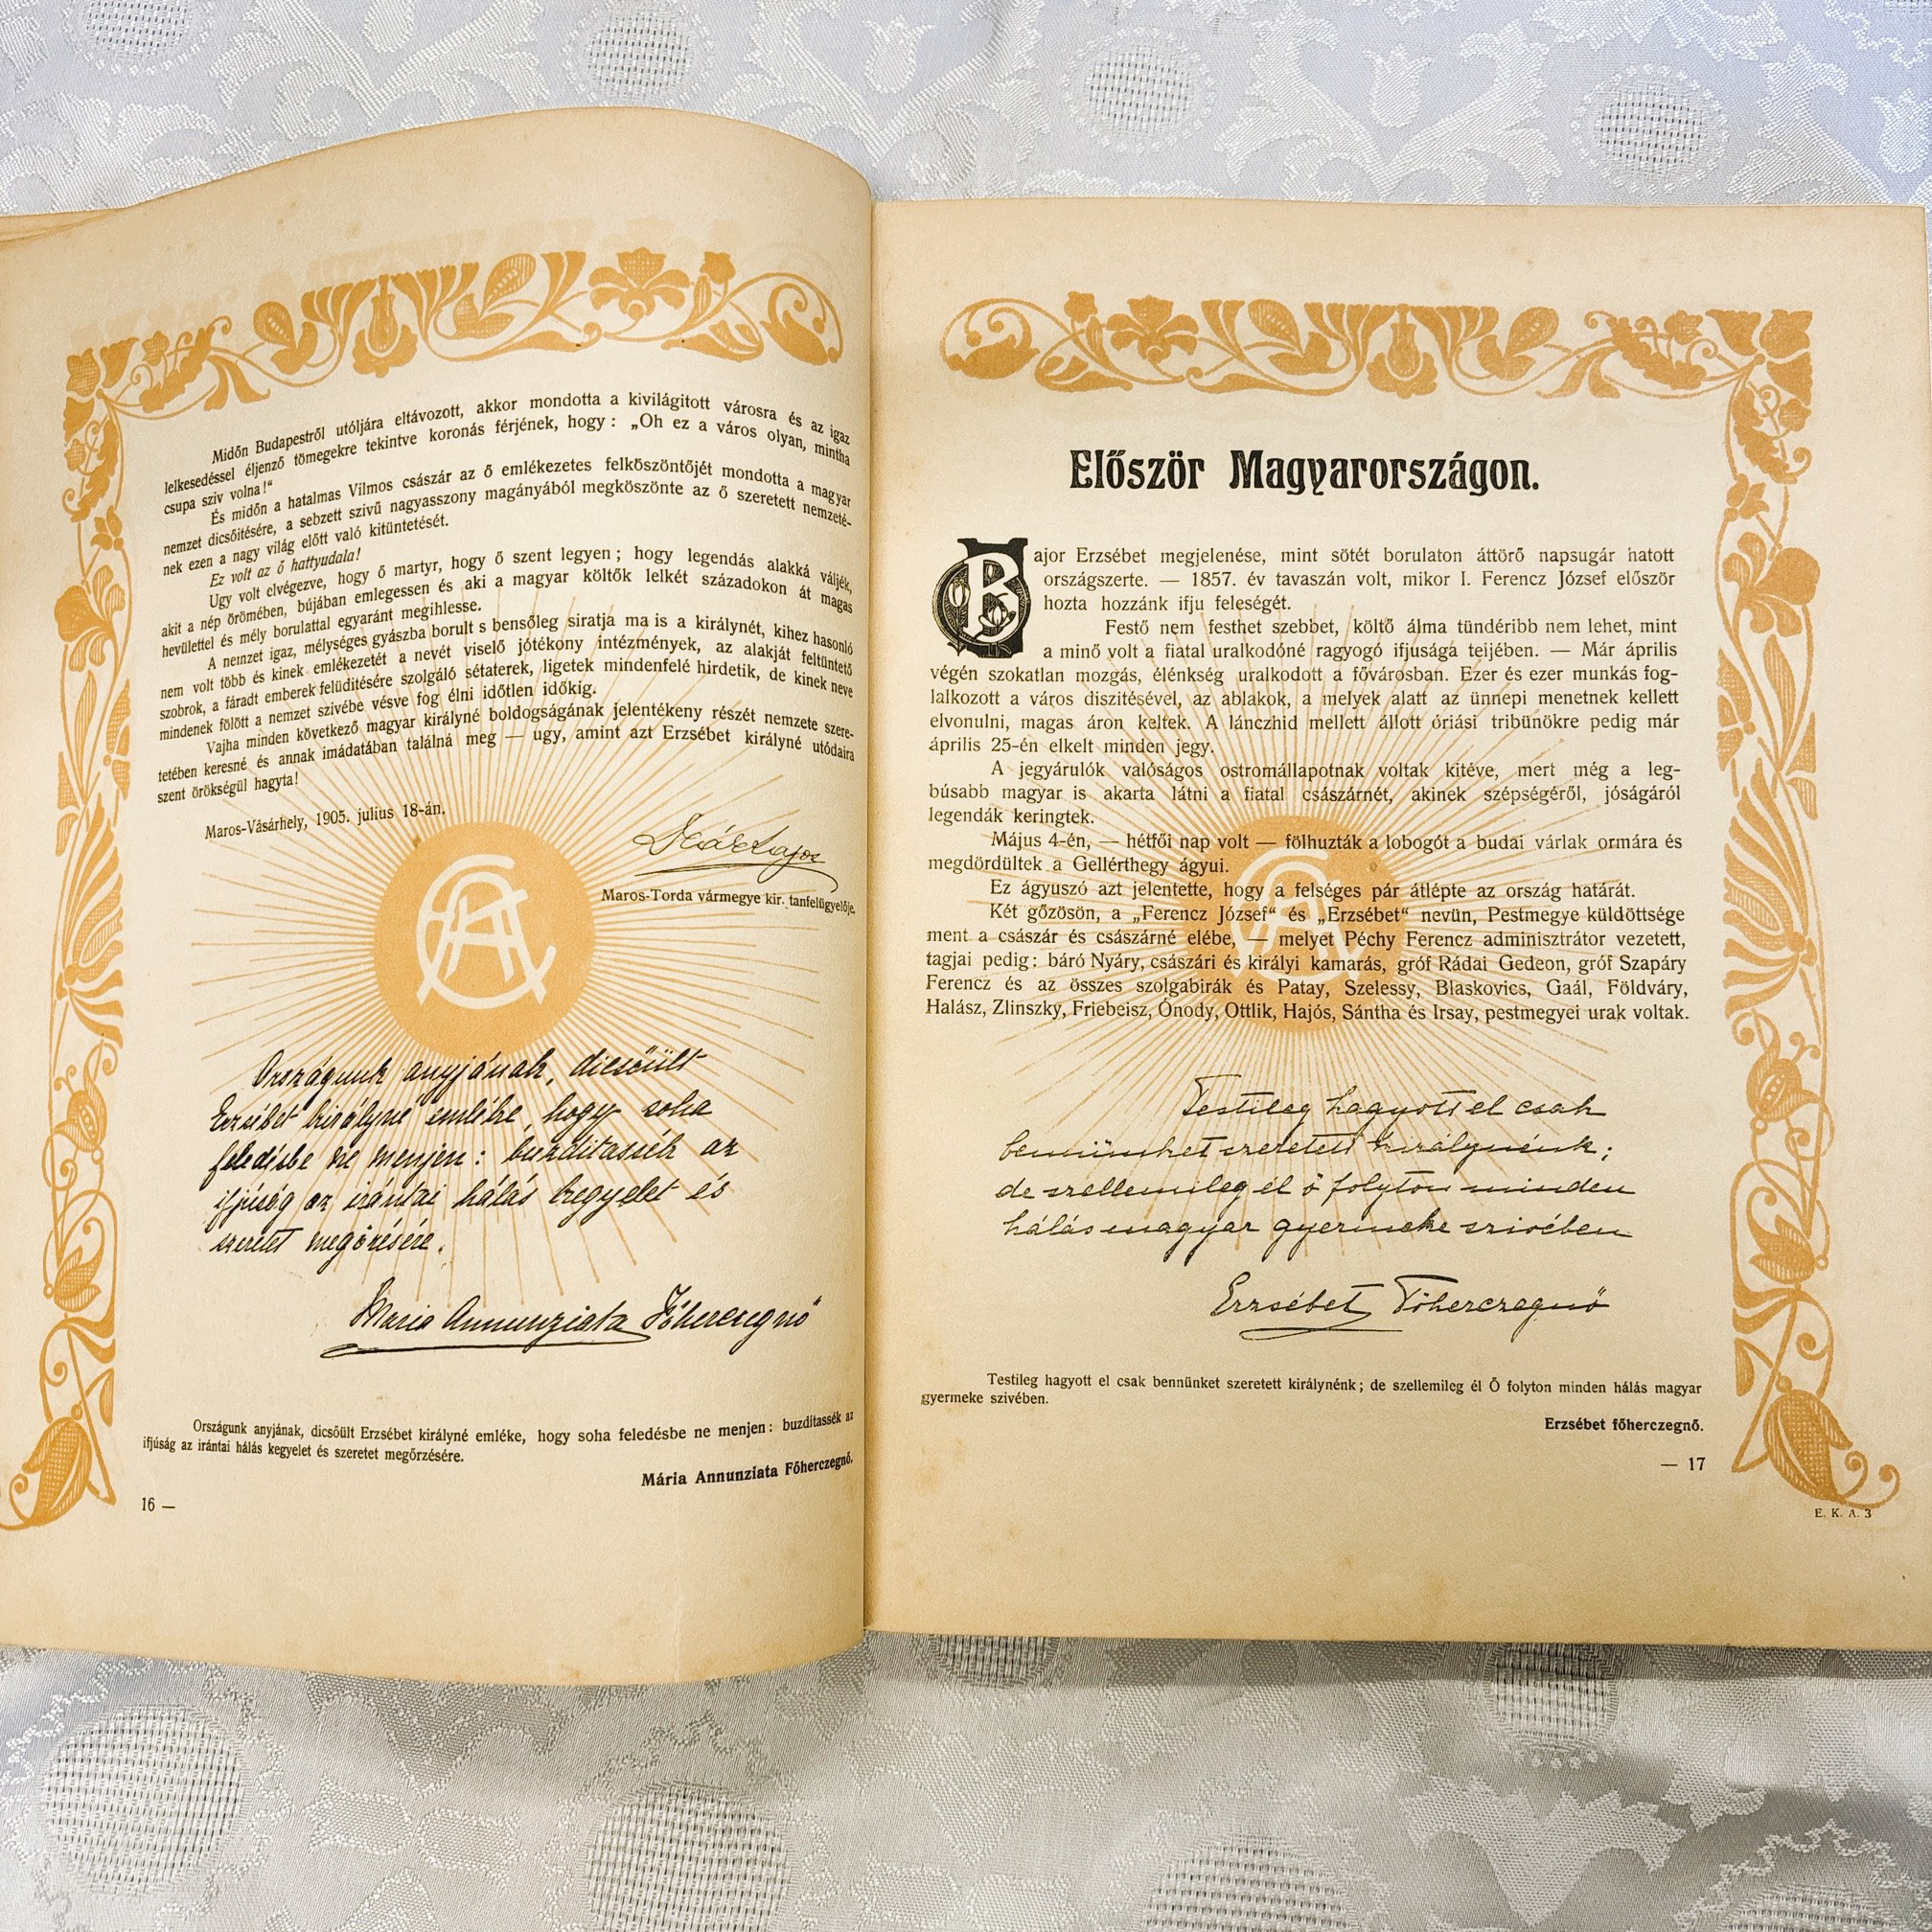 Midőn Budapestről utóljára eltávozott, akkor mondotta a kivilágitott városra és az igaz
lelkesedéssel éljenző tömegekre tekintve koronás férjének, hogy: „Oh ez a város olyan, mintha
csupa sziv volna!“
És midőn a hatalmas Vilmos császár az ő emlékezetes felköszöntőjét mondotta a magyar
nemzet dicsőitésére, a sebzett szivű nagyasszony magányából megköszönte az ő szeretett nemzeté-
nek ezen a nagy világ előtt való kitüntetését.
Ez volt az ő hattyudala!
Ugy volt elvégezve, hogy ő martyr, hogy ő szent legyen; hogy legendás alakká váljék,
akit a nép örömében, bújában emlegessen és aki a magyar költők lelkét századokon át magas
hevülettel és mély borulattal egyaránt megihlesse.
A nemzet igaz, mélységes gyászba borult s bensőleg siratja ma is a királynét, kihez hasonló
nem volt több és kinek emlékezetét a nevét viselő jótékony intézmények, az alakját feltüntető
szobrok, a fáradt emberek felüditésére szolgáló sétaterek, ligetek mindenfelé hirdetik, de kinek neve
mindenek fölött a nemzet szivébe vésve fog élni időtlen időkig.
Vajha minden következő magyar királyné boldogságának jelentékeny részét nemzete szere-
tetében keresné és annak imádatában találná meg — ugy, amint azt Erzsébet királyné utódaira
szent örökségül hagyta!
Maros-Vásárhely, 1905. július 18-án.
Maros-Torda vármegye kir. tanfelügyelője.
Országunk anyjának, dicsőült
Erzsébet királyné emléke, hogy soha
feledésbe ne menjen: buzdítassék az
ifjúság az irántai hálás kegyelet és
szeretet megőrzésére.
Maria Annunziata Főherczegnő
Országunk anyjának, dicsőült Erzsébet királyné emléke, hogy soha feledésbe ne menjen: buzdítassék az
ifjúság az irántai hálás kegyelet és szeretet megőrzésére.
Mária Annunziata Főherczegnő.
16 —
Először Magyarországon.
Bajor Erzsébet megjelenése, mint sötét borulaton áttörő napsugár hatott
országszerte. — 1857. év tavaszán volt, mikor I. Ferencz József először
hozta hozzánk ifju feleségét.
Festő nem festhet szebbet, költő álma tündéribb nem lehet, mint
a minő volt a fiatal uralkodóné ragyogó ifjusága teijében. — Már április
végén szokatlan mozgás, élénkség uralkodott a fővárosban. Ezer és ezer munkás fog-
lalkozott a város diszitésével, az ablakok, a melyek alatt az ünnepi menetnek kellett
elvonulni, magas áron keltek. A lánczhid mellett állott óriási tribünökre pedig már
április 25-én elkelt minden jegy.
A jegyárulók valóságos ostromállapotnak voltak kitéve, mert még a leg-
búsabb magyar is akarta látni a fiatal császárnét, akinek szépségéről, jóságáról
legendák keringtek.
Május 4-én, — hétfői nap volt — fölhuzták a lobogót a budai várlak ormára és
megdördültek a Gellérthegy ágyui.
Ez ágyuszó azt jelentette, hogy a felséges pár átlépte az ország határát.
Két gőzösön, a „Ferencz József“ és „Erzsébet“ nevün, Pestmegye küldöttsége
ment a császár és császárné elébe, — melyet Péchy Ferencz adminisztrátor vezetett,
tagjai pedig: báró Nyáry, császári és királyi kamarás, gróf Rádai Gedeon, gróf Szapáry
Ferencz és az összes szolgabirák és Patay, Szelessy, Blaskovics, Gaál, Földváry,
Halász, Zlinszky, Friebeisz, Ónody, Ottlik, Hajós, Sántha és Irsay, pestmegyei urak voltak.
Testileg hagyott el csak
bennünket szeretett királynénk;
de szellemileg él ő folyton minden
hálás magyar gyermeke szivében
Erzsébet Főherczegnő
Testileg hagyott el csak bennünket szeretett királynénk; de szellemileg él Ő folyton minden hálás magyar
gyermeke szivében.
Erzsébet főherczegnő.
— 17
E. K. A. 3